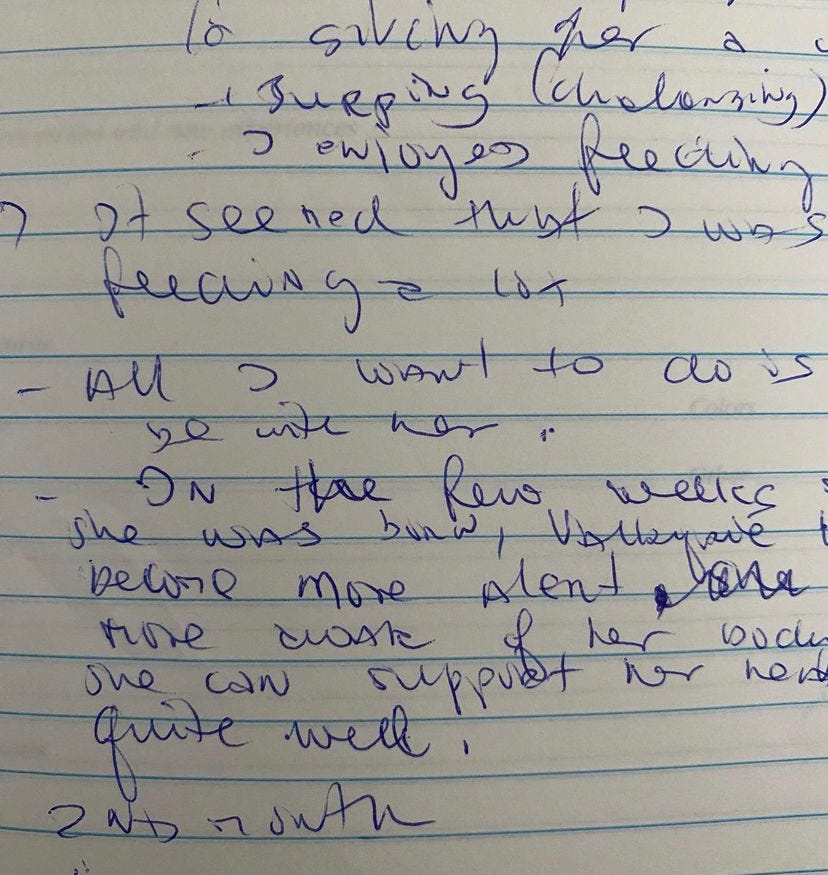 giving her a
- Burping (challenging)
- I enjoyed feeding
It seemed that I was
feeding a lot
- All I want to do is
be with her.
- In the few weeks
she was born, Valkyrie
become more alert,
more aware of her body
she can support her head
quite well.
2nd month